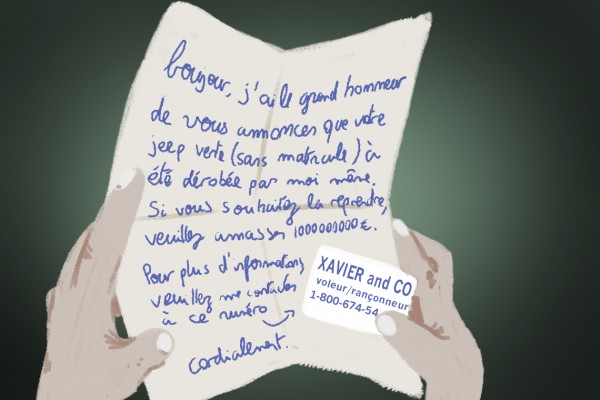 bonjour, j'ai le grand honneur
de vous annoncer que votre
jeep verte (sans matricule) à
été dérobée par moi même.
Si vous souhaitez la reprendre,
veuillez amasser 1000000000 €.
Pour plus d'informations
veuillez me contacter
à ce numéro
cordialement.
XAVIER and CO
voleur/rançonneur
1-800-674-54